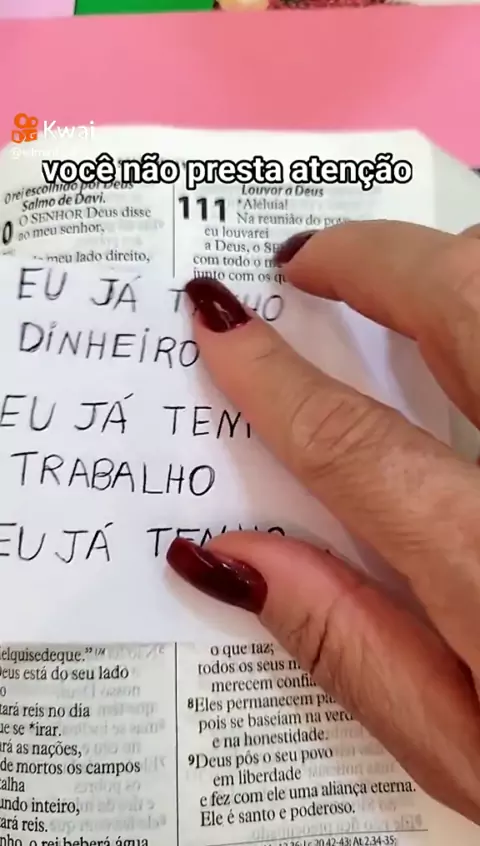 Kwai
você não presta atenção
O rei escolhido por Deus
Salmo de Davi.
O SENHOR Deus disse
ao meu senhor,
meu lado direito,
Louvor a Deus
111 *Aleluia!
Na reunião do
eu louvarei
a Deus, o
com todo o
junto com os
EU JÁ
DINHEIRO
EU JÁ
TRABALHO
EU JÁ
elquisedeque."
eus está do seu lado
ará reis no dia
ue se *irar.
rá as nações,
de mortos os campos
undo inteiro,
ará reis.
o rei beberá água
o que faz;
todos os seus
merecem
8Eles permanecem
pois se baseiam na
e na honestidade.
9Deus pôs o seu povo
em liberdade
e fez com ele uma aliança eterna.
Ele é santo e poderoso.
20.42-43; At 2.34-35;